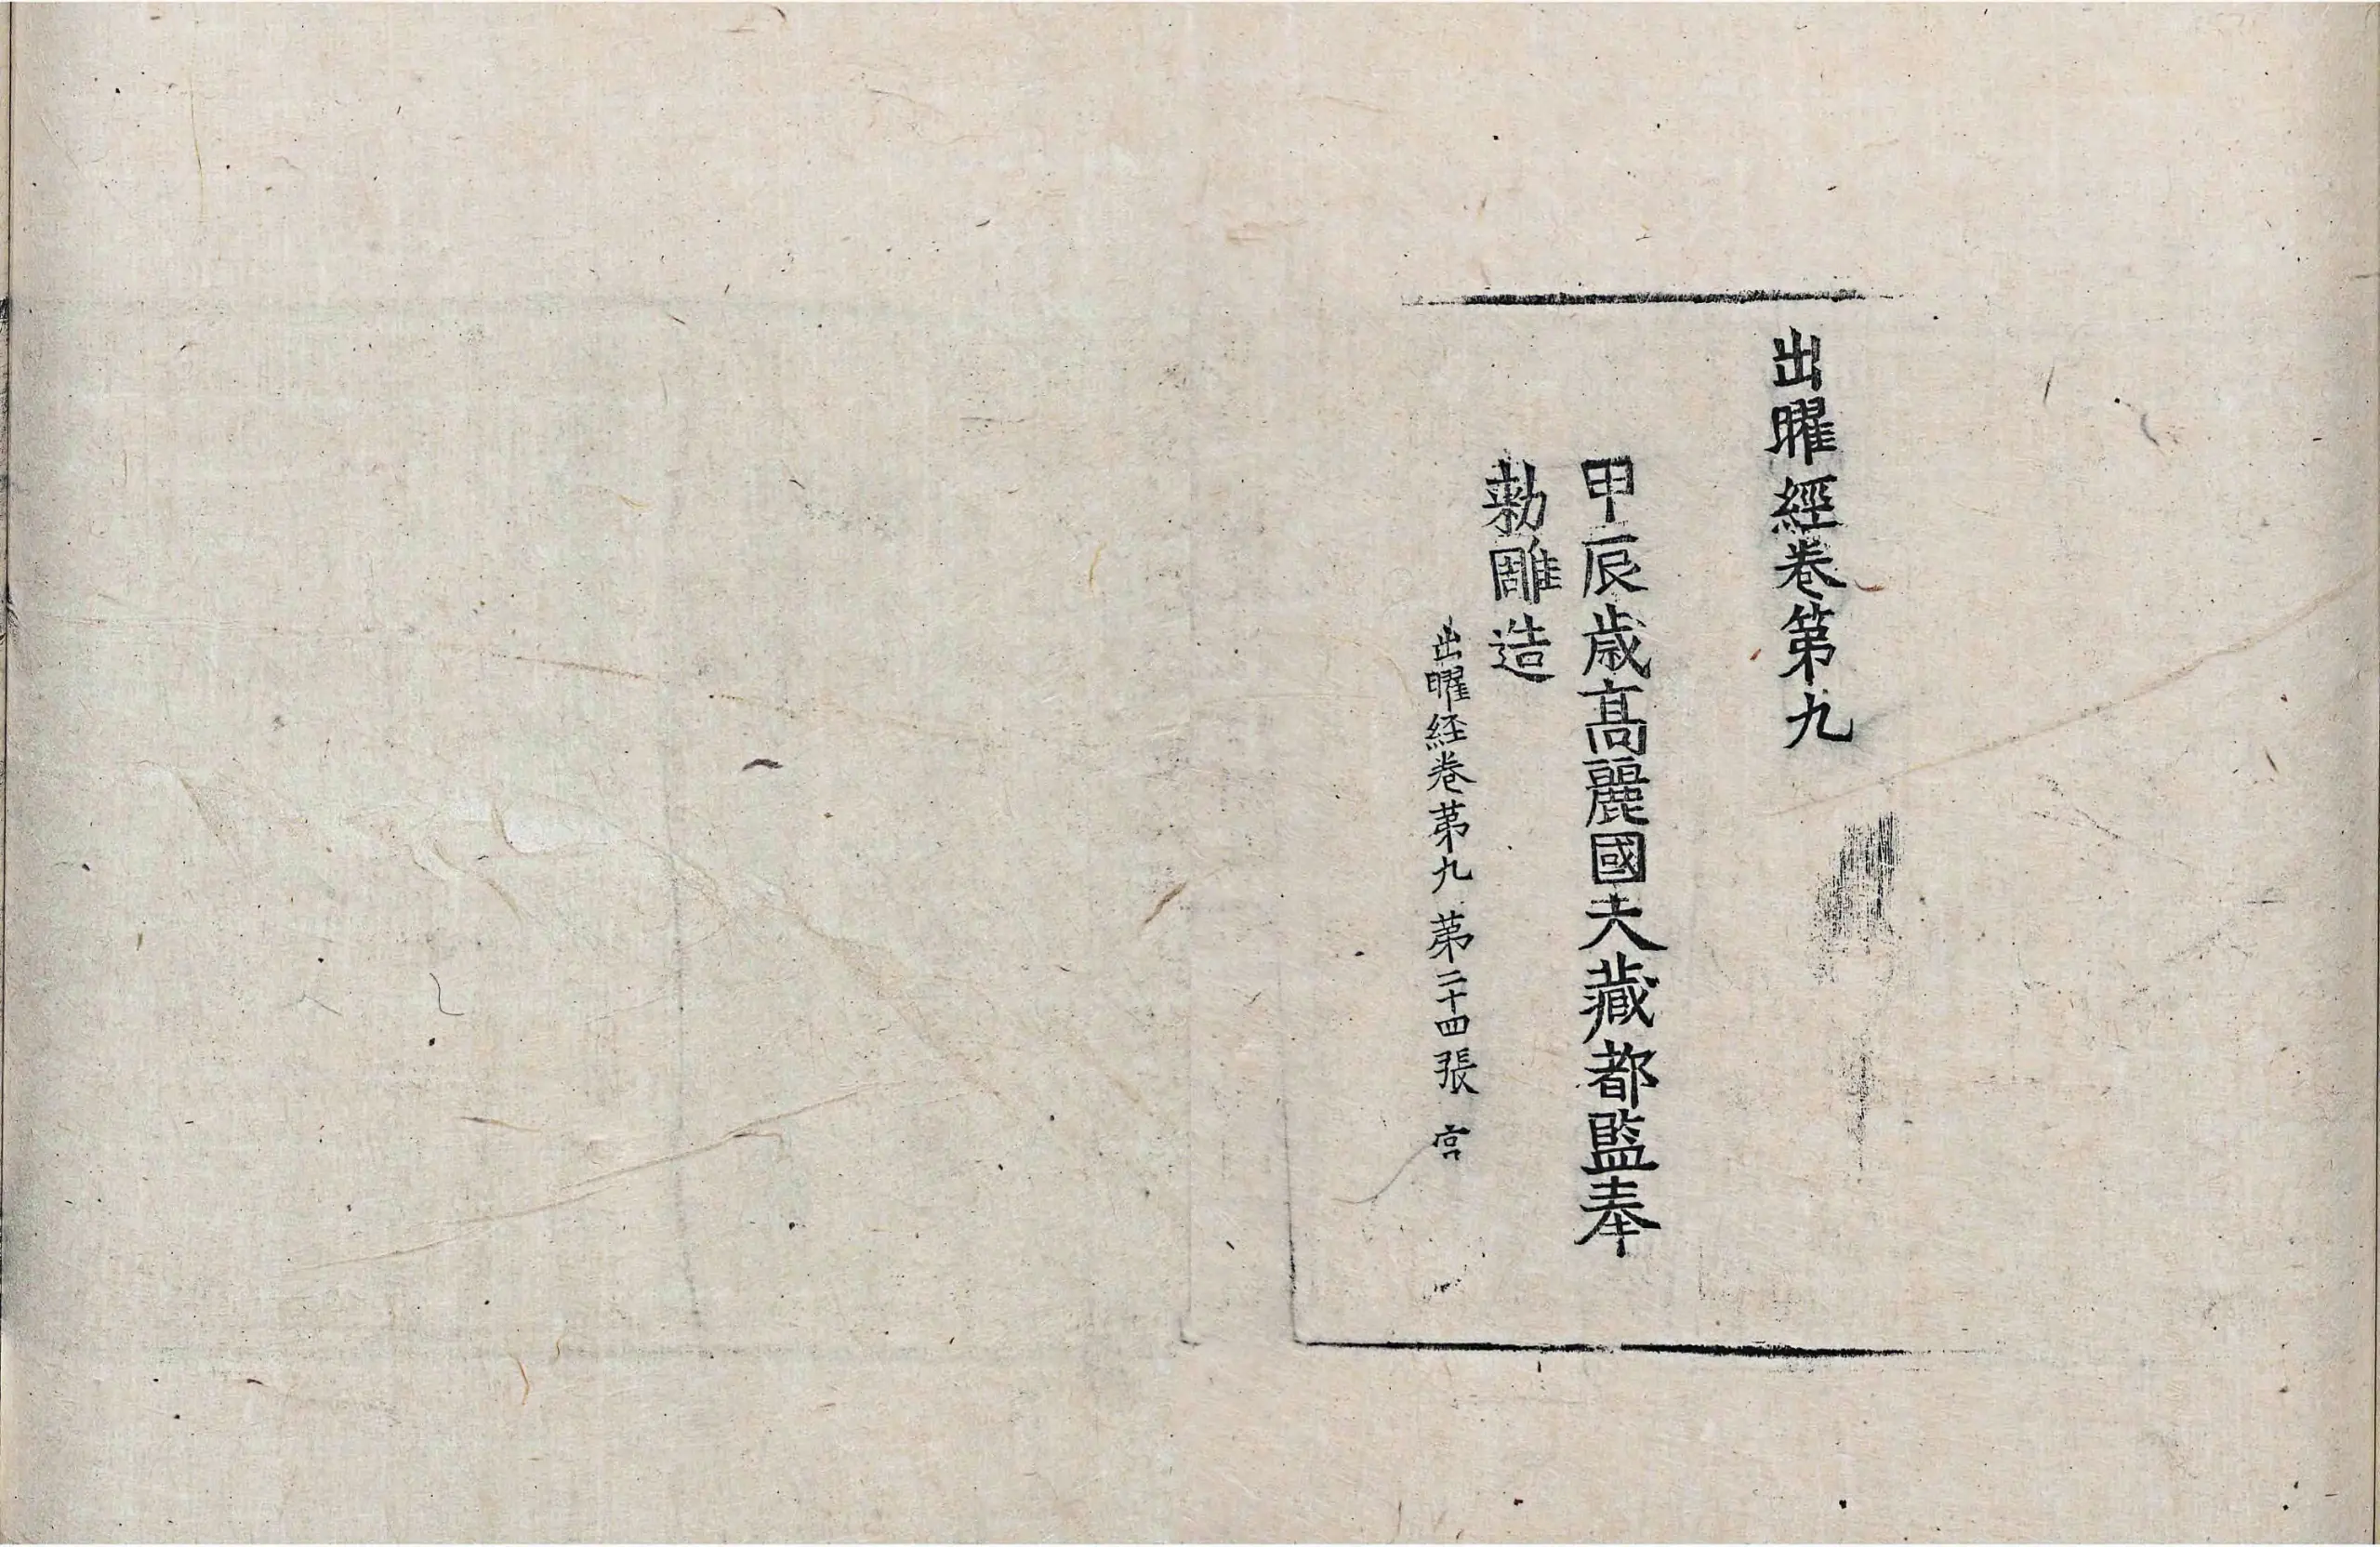 出曜經卷第九
甲辰歲高麗國大藏都監奉
勅雕造
出曜経卷第九 第二十四張 宮